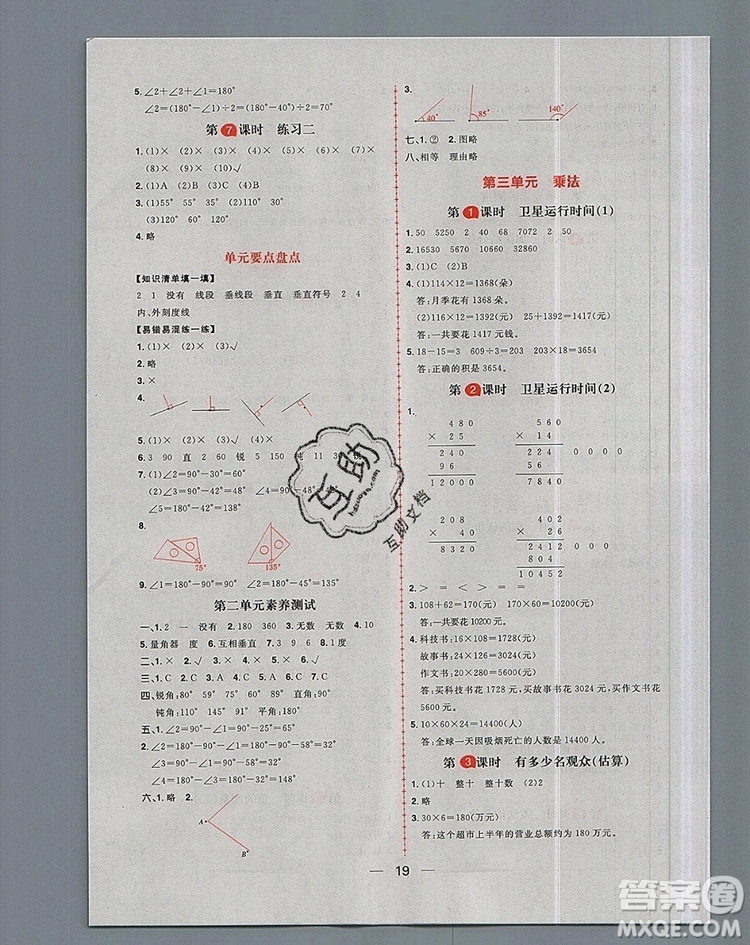 5. ∠2+∠2+∠1=180°
∠2=(180°-∠1)÷2=(180°-40°)÷2=70°
第7课时 练习二
1. (1)× (2)× (3)× (4)× (5)× (6)× (7)×
(8)× (9)× (10)× (11)√
2. (1)A (2)B (3)C (4)B
3. (1)55° 35° (2)135° 45°
(3)120° 60°
4. 略
单元要点盘点
【知识清单填一填】
2 1 没有 线段 垂线段 垂直 垂直符号 2 4
内、外刻度线
【易错易混练一练】
1. (1)× (2)× (3)× (4)√
2. 略
3. ×
4.
5. (1)× (2)× (3)× (4)√
6. 3 90 直 2 60 锐 5 150 钝 11 30 锐
7. (1)∠2=90°-30°=60°
(2)∠2=180°-42°=138° ∠4=90°-42°=48°
∠5=180°-42°=138°
8.
75° 135°
9. ∠1=180°-90°-∠2=180°-90°
第二单元素养测试
一、1. 2 一 没有 2. 180 3. 无数 无数 4. 10
5. 量角器 度 6. 互相垂直 7. 3 9 6 8. 1度
二、1. × 2. √ 3. × 4. × 5. √
三、1. C 2. D 3. C 4. A 5. C
四、锐角:80° 59° 75° 60° 89° 直角:90°
钝角:110° 145° 91° 平角:180°
五、1. ∠2=90°-∠1=90°-25°=65°
2. ∠2=180°-∠1=180°-50°=130°
∠3=90°-∠1=90°-50°=40°
∠4=180°-90°=90°
六、1. 略 2. 略
A
B
3.
40° 85° 140°
七、1. ② 2. 图略
八、相等 理由略
第三单元 乘法
第1课时 卫星运行时间(1)
1. 50 5250 2 0 8 7072 2 50
2. 16530 5070 10660 32860
3. (1)C (2)B
4. (1)114×12=1368(朵)
答:月季花有1368朵。
(2)116×12=1392(元) 109×13=1417(元)
答:一共要花1417元钱。
5. 18-15=3 609÷3=203 203×18=3654
答:正确的积是3654。
第2课时 卫星运行时间(2)
1.
480 560
× 25 × 14
240 224 0 0 0 0
96 56
12000 7840
208 402
× 40 × 26
8320 2412 0 0 0 0
804
10452
2. > < > < > =
3. 108+62=170(元) 170×60=10200(元)
答:一共要花10200元。
4. 科技书:16×108=1728(元)
故事书:24×126=3024(元)
作文书:20×280=5600(元)
答:买科技书花1728元,买故事书花3024元,买作文书花
5600元。
5. 10×60×24=14400(人)
答:全球一天因吸烟死亡的人数是14400人。
第3课时 有多少名观众(估算)
1. (1)十 整十 整十数 (2)2
2. 略
3. 30×6=180(万元)
答:这个超市上半年的营业总额约为180万元。
19
互助
互助文档
答案圈
MXQE.COM